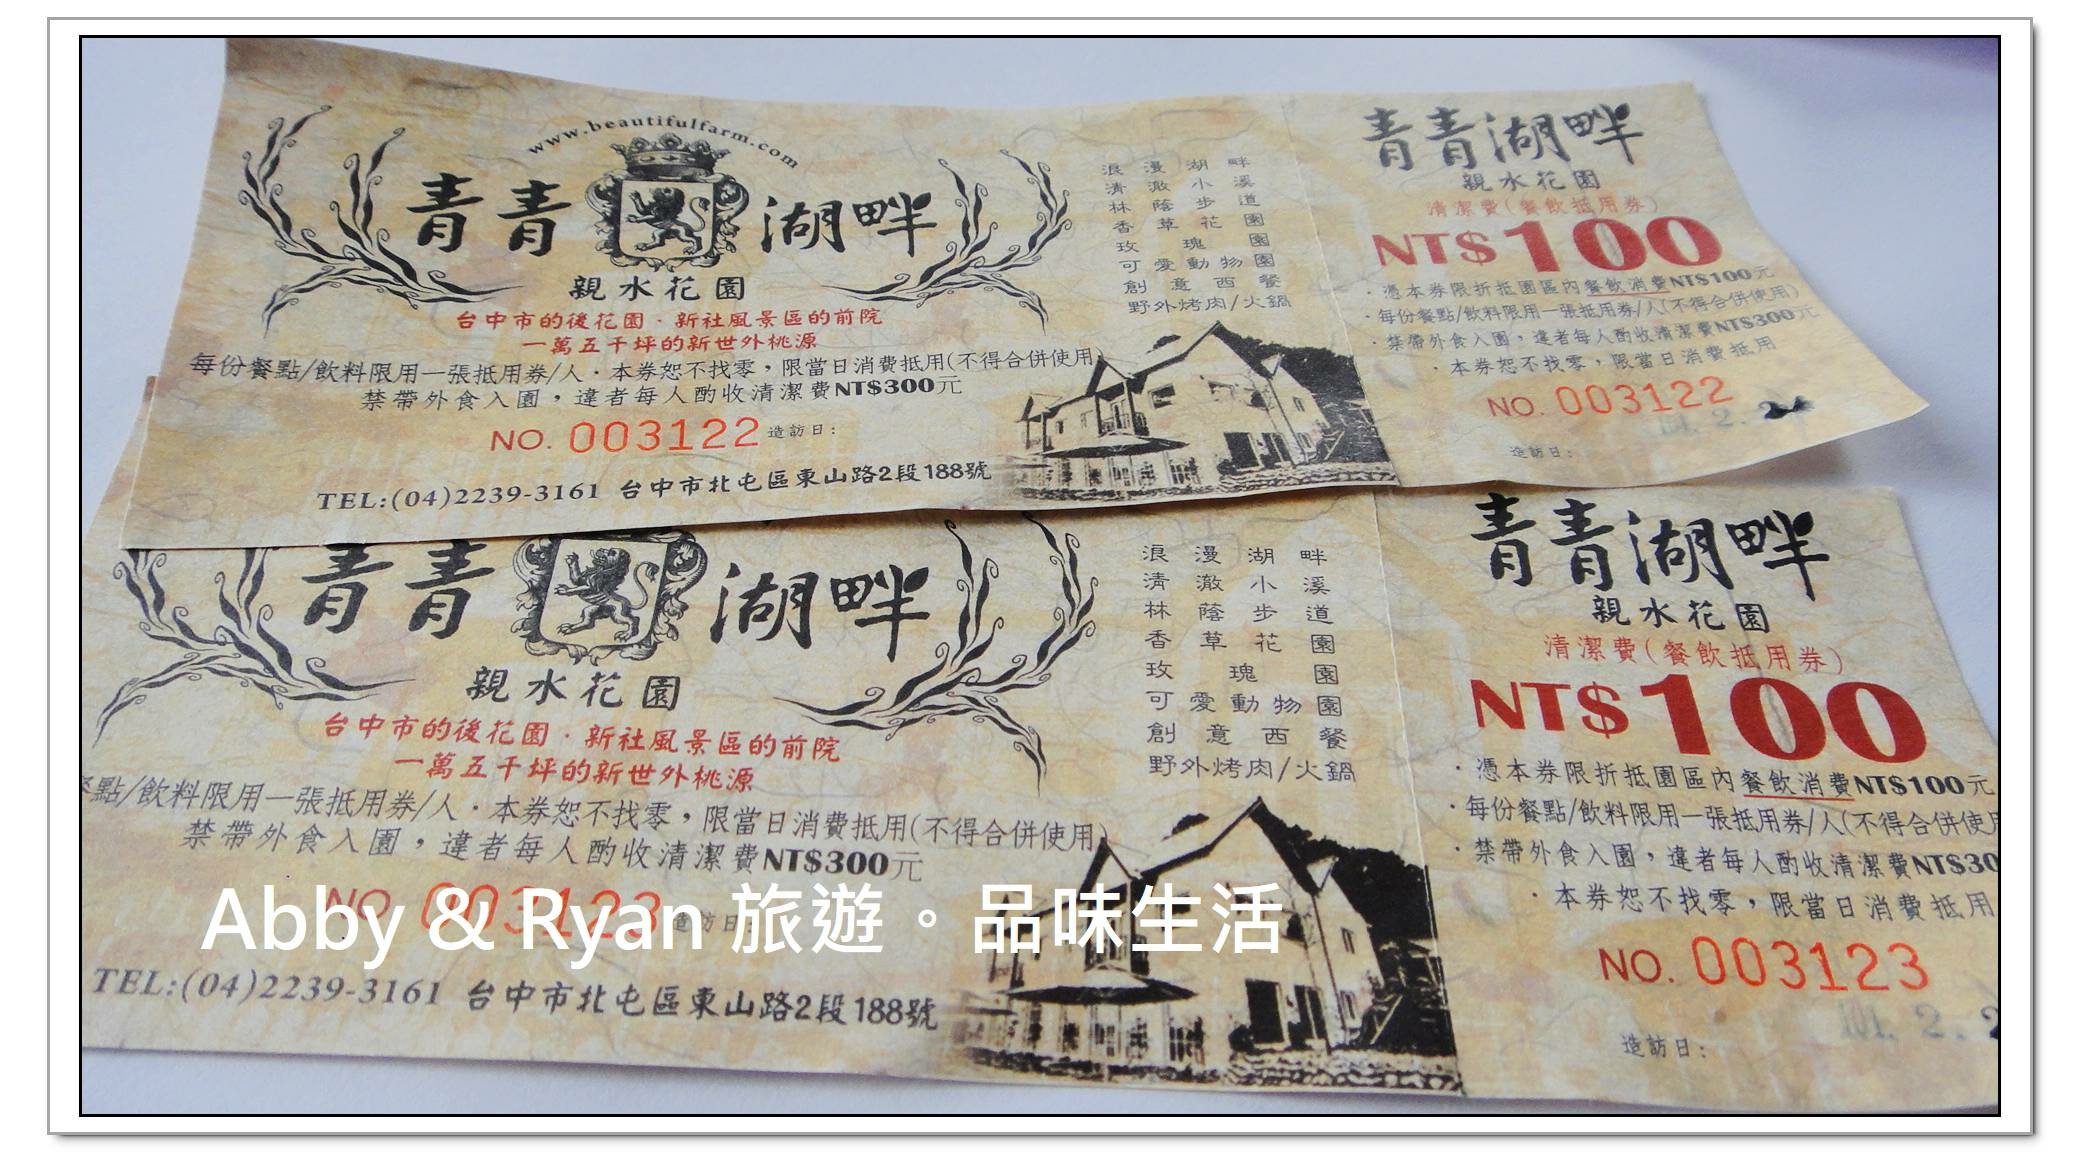 www.beautifulfarm.com
青青湖畔
親水花園
台中市的後花園·新社風景區的前院
一萬五千坪的新世外桃源
每份餐點/飲料限用一張抵用券/人·本券恕不找零，限當日消費抵用(不得合併使用)
禁帶外食入園，違者每人酌收清潔費NT$300元
NO. 003122 造訪日:
TEL:(04)2239-3161 台中市北屯區東山路2段188號
浪漫湖畔
清澈小溪
林蔭步道
香草花園
玫瑰園
可愛動物園
創意西餐
野外烤肉/火鍋
青青湖畔
親水花園
清潔費(餐飲抵用券)
NT$100
·憑本券限折抵園區內餐飲消費NT$100元
·每份餐點/飲料限用一張抵用券/人(不得合併使用)
·禁帶外食入園，違者每人酌收清潔費NT$300元
·本券恕不找零，限當日消費抵用
NO. 003122
造訪日:
青青湖畔
親水花園
台中市的後花園·新社風景區的前院
一萬五千坪的新世外桃源
餐點/飲料限用一張抵用券/人·本券恕不找零，限當日消費抵用(不得合併使用)
禁帶外食入園，違者每人酌收清潔費NT$300元
NO. 003123 造訪日:
Abby & Ryan 旅遊。品味生活
TEL:(04)2239-3161 台中市北屯區東山路2段188號
浪漫湖畔
清澈小溪
林蔭步道
香草花園
玫瑰園
可愛動物園
創意西餐
野外烤肉/火鍋
青青湖畔
親水花園
清潔費(餐飲抵用券)
NT$100
·憑本券限折抵園區內餐飲消費NT$100元
·每份餐點/飲料限用一張抵用券/人(不得合併使用
·禁帶外食入園，違者每人酌收清潔費NT$30
·本券恕不找零，限當日消費抵用
NO. 003123
造訪日: